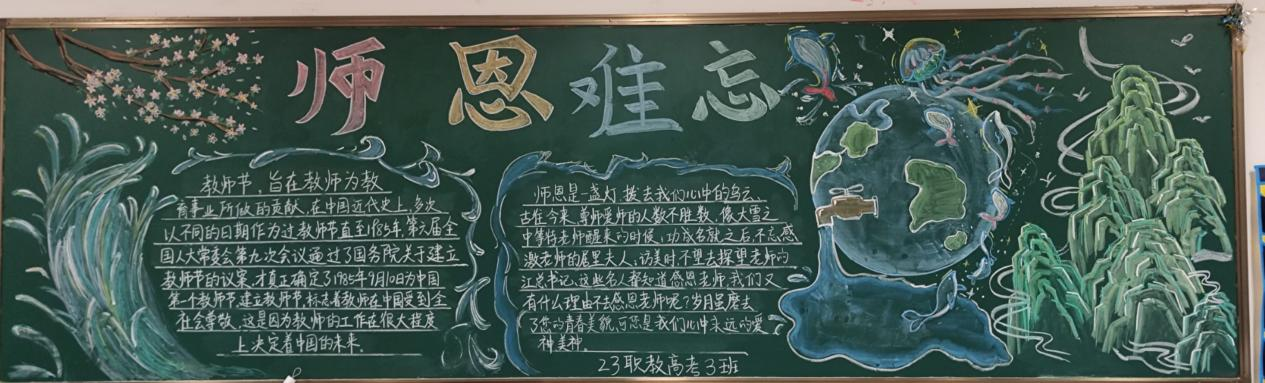 师恩难忘
教师节，旨在教师为教
育事业所做的贡献，在中国近代史上，多次
以不同的日期作为过教师节直至1985年，第六届全
国人大常委会第九次会议通过了国务院关于建立
教师节的议案，才真正确定了1985年9月10日为中国
第一个教师节，建立教师节标志着教师在中国受到全
社会尊敬，这是因为教师的工作在很大程度
上决定着中国的未来。
师恩是一盏灯，拨去我们心中的乌云，
古往今来，尊师爱师的人数不胜数，像大雪之
中等待老师醒来的时候，功成名就之后，不忘感
激老师的居里夫人，访美时不望去探望老师的
江总书记，这些名人都知道感恩老师，我们又
有什么理由不去感恩老师呢？岁月虽磨去
了您的青春美貌，可您是我们心中永远的爱
神美神。
23职教高考3班